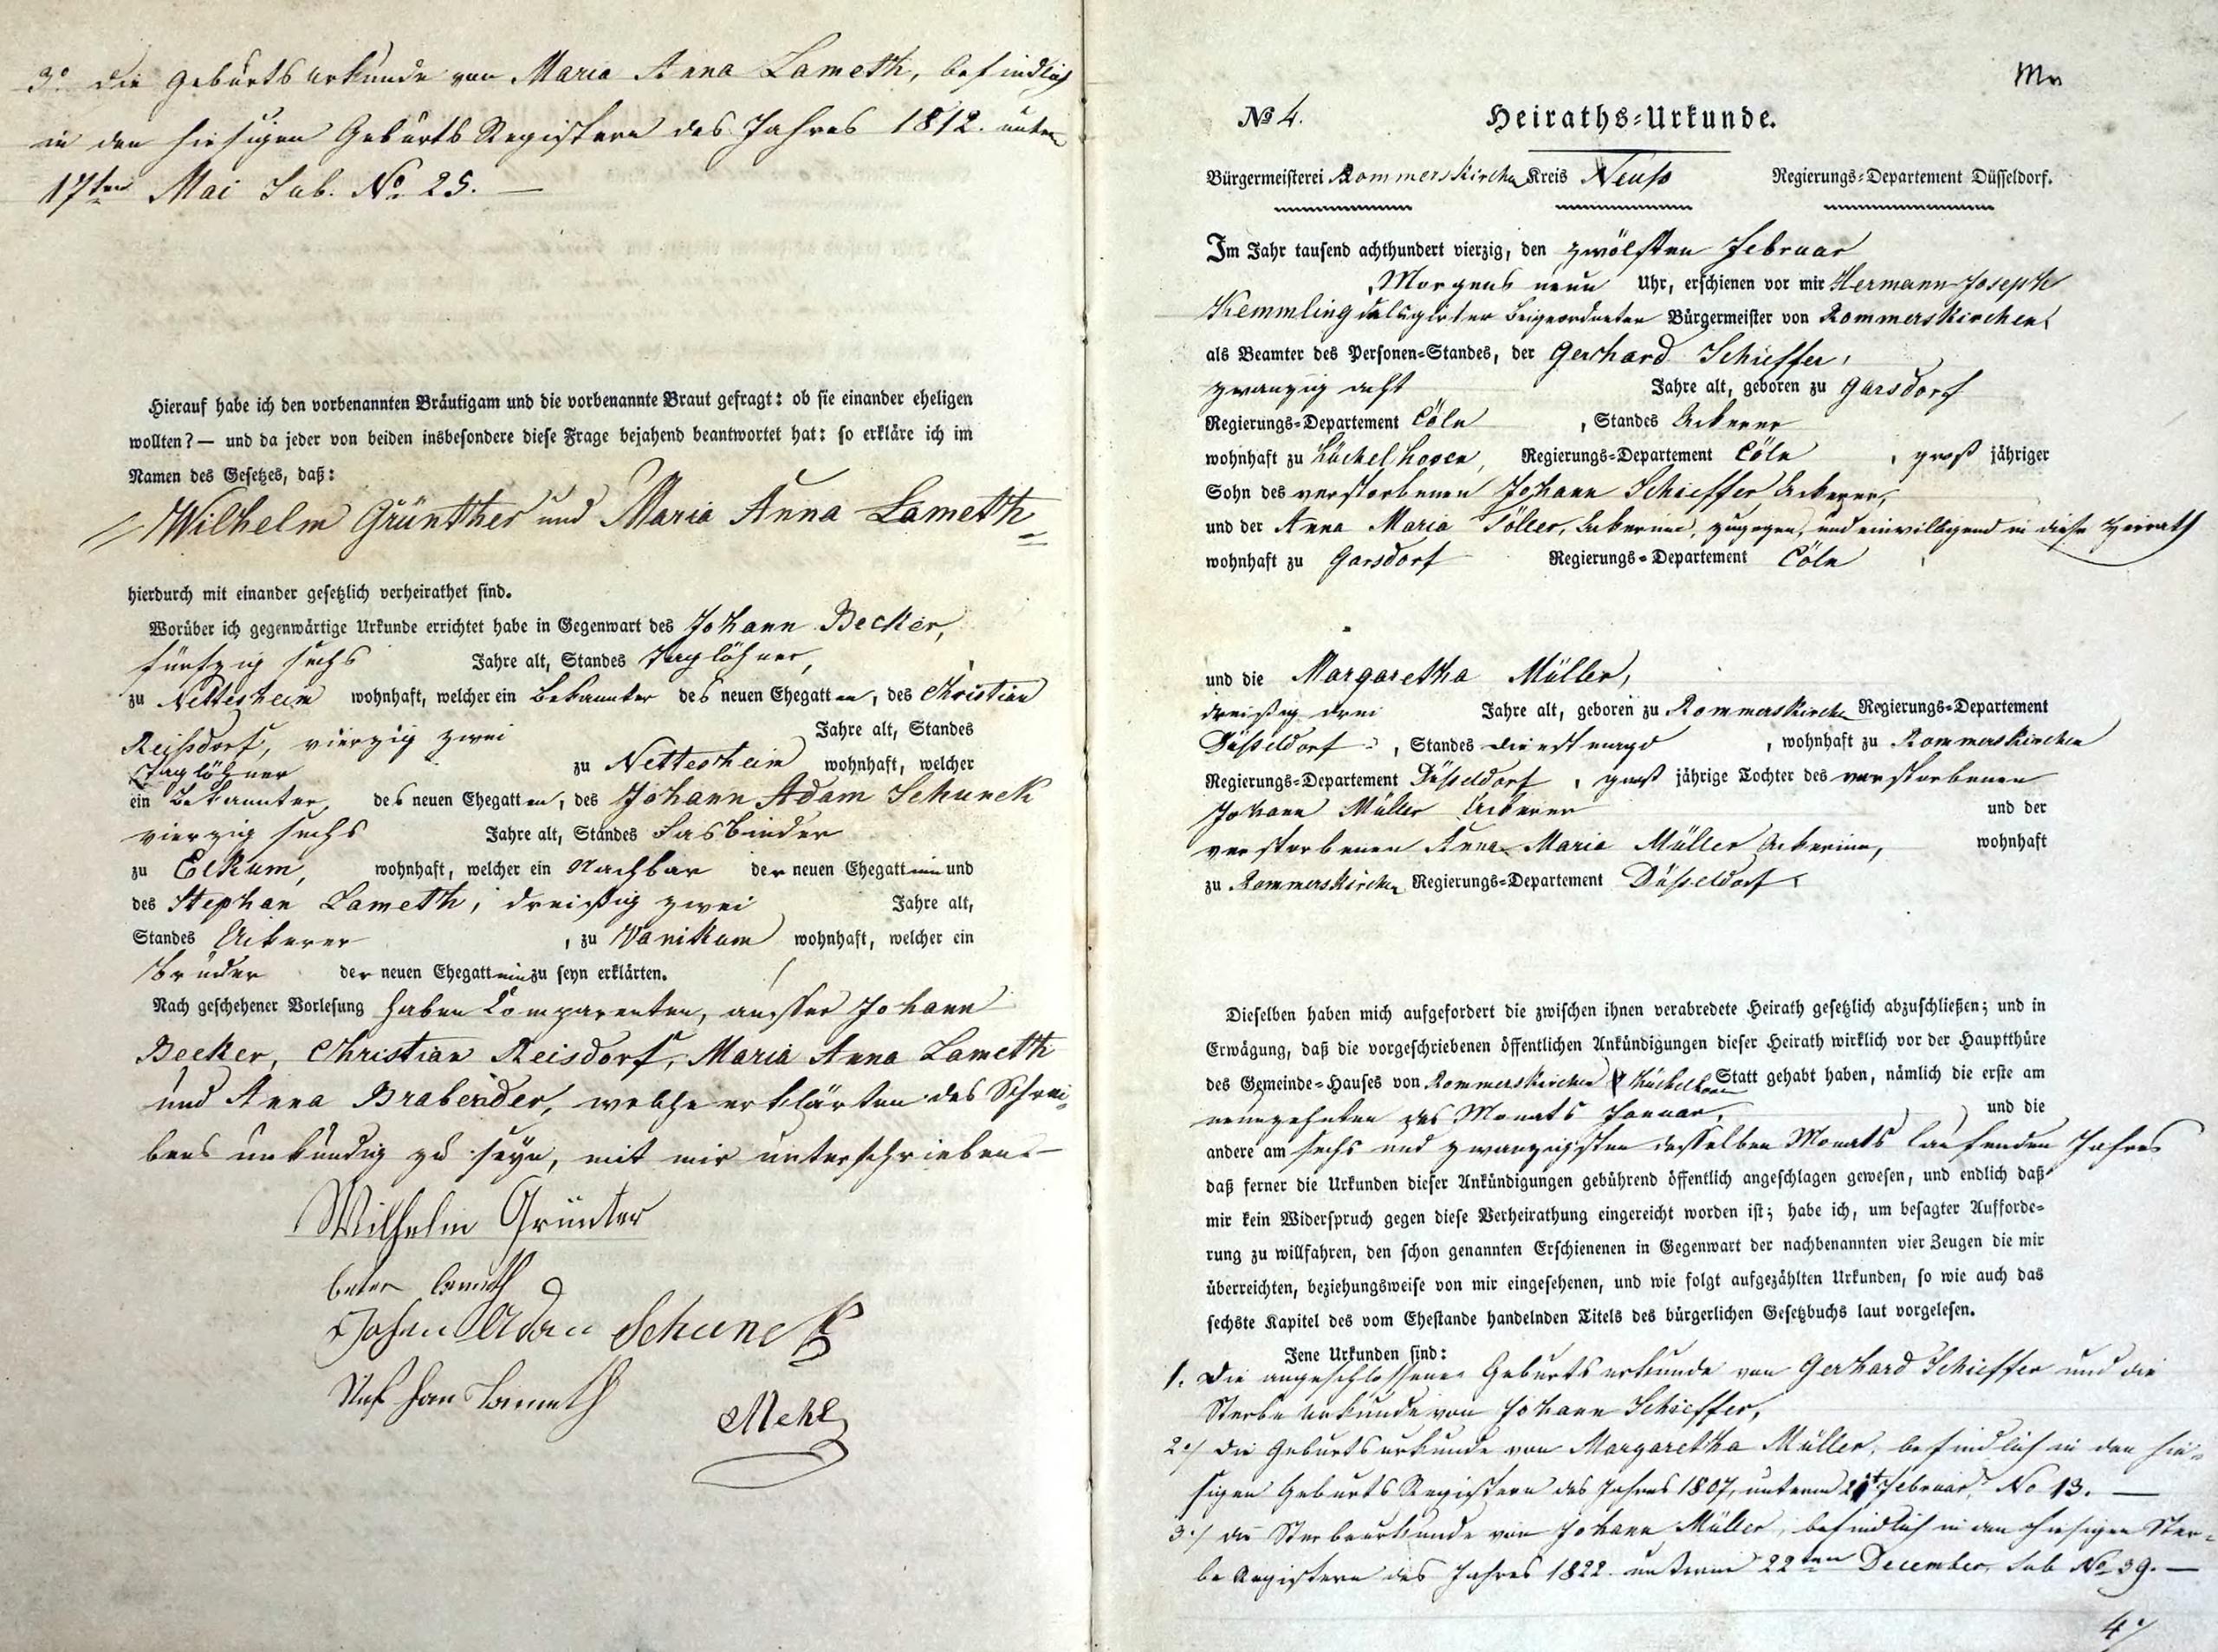 3o. die Geburtsurkunde von Maria Anna Lameth, befindlich
in den hiesigen Geburts Registern des Jahres 1812. unterm
17ten Mai Sub. No. 25. —
Hierauf habe ich den vorbenannten Bräutigam und die vorbenannte Braut gefragt: ob sie einander eheligen
wollten? — und da jeder von beiden insbesondere diese Frage bejahend beantwortet hat: so erkläre ich im
Namen des Gesetzes, daß:
Wilhelm Grünther und Maria Anna Lameth
hierdurch mit einander gesetzlich verheirathet sind.
Worüber ich gegenwärtige Urkunde errichtet habe in Gegenwart des Johann Becker,
fünfzig sechs Jahre alt, Standes Taglöhner,
zu Nettesheim wohnhaft, welcher ein Bekannter des neuen Ehegatten, des Christian
Reisdorf, vierzig zwei Jahre alt, Standes
Taglöhner zu Nettesheim wohnhaft, welcher
ein Bekannter, des neuen Ehegatten, des Johann Adam Schunck
vierzig sechs Jahre alt, Standes Fasbinder
zu Eckum, wohnhaft, welcher ein Nachbar der neuen Ehegattinn und
des Stephan Lameth, dreißig zwei Jahre alt,
Standes Ackerer, zu Vanikum wohnhaft, welcher ein
Bruder der neuen Ehegattinn zu seyn erklärten.
Nach geschehener Vorlesung haben Comparenten, ausser Johann
Becker, Christian Reisdorf, Maria Anna Lameth
und Anna Brabender, welche erklärten des Schrei-
bens unkundig zu seyn, mit mir unterschrieben. —
Wilhelm Grünter
Lameth
Johan Adam Schunck
Lameth
Mehl
No 4. Heiraths-Urkunde.
Bürgermeisterei Rommerskirchen Kreis Neuss Regierungs-Departement Düsseldorf.
Im Jahr tausend achthundert vierzig, den zwölften Februar
Morgens neun Uhr, erschienen vor mir Hermann Joseph
Kemmling delegirter Beigeordneter Bürgermeister von Rommerskirchen,
als Beamter des Personen-Standes, der Gerhard Schieffer,
zwanzig acht Jahre alt, geboren zu Garsdorf
Regierungs-Departement Cöln, Standes Ackerer
wohnhaft zu Hüchelhoven, Regierungs-Departement Cöln, groß jähriger
Sohn des verstorbenen Johann Schieffer Ackerer,
und der Anna Maria Töller, Ackerinn, zugegen, und einwilligend in diese Heirath
wohnhaft zu Garsdorf Regierungs-Departement Cöln,
und die Margaretha Müller,
dreißig drei Jahre alt, geboren zu Rommerskirchen Regierungs-Departement
Düsseldorf, Standes Dienstmagd, wohnhaft zu Rommerskirchen
Regierungs-Departement Düsseldorf, groß jährige Tochter des verstorbenen
Johann Müller Ackerer und der
verstorbenen Anna Maria Müller Ackerinn, wohnhaft
zu Rommerskirchen Regierungs-Departement Düsseldorf.
Dieselben haben mich aufgefordert die zwischen ihnen verabredete Heirath gesetzlich abzuschließen; und in
Erwägung, daß die vorgeschriebenen öffentlichen Ankündigungen dieser Heirath wirklich vor der Hauptthüre
des Gemeinde-Hauses von Rommerskirchen Hüchelhoven Statt gehabt haben, nämlich die erste am
neunzehnten des Monats Januar, und die
andere am sechs und zwanzigsten desselben Monats laufenden Jahres
daß ferner die Urkunden dieser Ankündigungen gebührend öffentlich angeschlagen gewesen, und endlich daß
mir kein Widerspruch gegen diese Verheirathung eingereicht worden ist; habe ich, um besagter Aufforde-
rung zu willfahren, den schon genannten Erschienenen in Gegenwart der nachbenannten vier Zeugen die mir
überreichten, beziehungsweise von mir eingesehenen, und wie folgt aufgezählten Urkunden, so wie auch das
sechste Kapitel des vom Ehestande handelnden Titels des bürgerlichen Gesetzbuchs laut vorgelesen.
Jene Urkunden sind:
1. Die angeschlossene Geburtsurkunde von Gerhard Schieffer und die
Sterbe Urkunde von Johann Schieffer,
2./ die Geburtsurkunde von Margaretha Müller, befindlich in den hie-
sigen Geburts Registern des Jahres 1807, unterm Februar, No 13. —
3./ die Sterbeurkunde von Johann Müller, befindlich in den hiesigen Ster-
be Registern des Jahres 1822 unterm 22ten December, sub No 39. —
4/